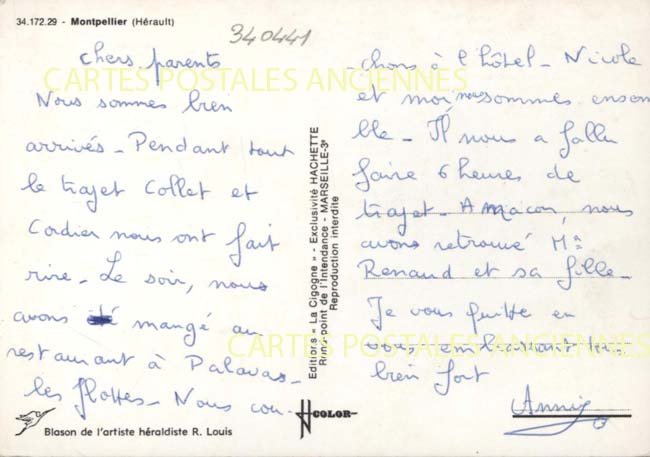 34.172.29 - Montpellier (Hérault)
340441
CARTES POSTALES ANCIENNES
chers parents
Nous sommes bien
arrivés - Pendant tout
le trajet Collet et
Cordier nous ont fait
rire - Le soir, nous
avons été mangé au
restaurant à Palavas-
les flottes - Nous cou-
Blason de l'artiste héraldiste R. Louis
Editions « La Cigogne » - Exclusivité HACHETTE
Rond-point de l'Intendance - MARSEILLE-3e
Reproduction interdite
COLOR
-chons à l'hôtel - Nicole
et moi nous sommes ensem
ble - Il nous a fallu
faire 6 heures de
trajet - A macon, nous
avons retrouvé Ma
Renaud et sa fille -
Je vous quitte en
CARTES POSTALES ANCIENNES
vous embrassant très
bien fort
Annie